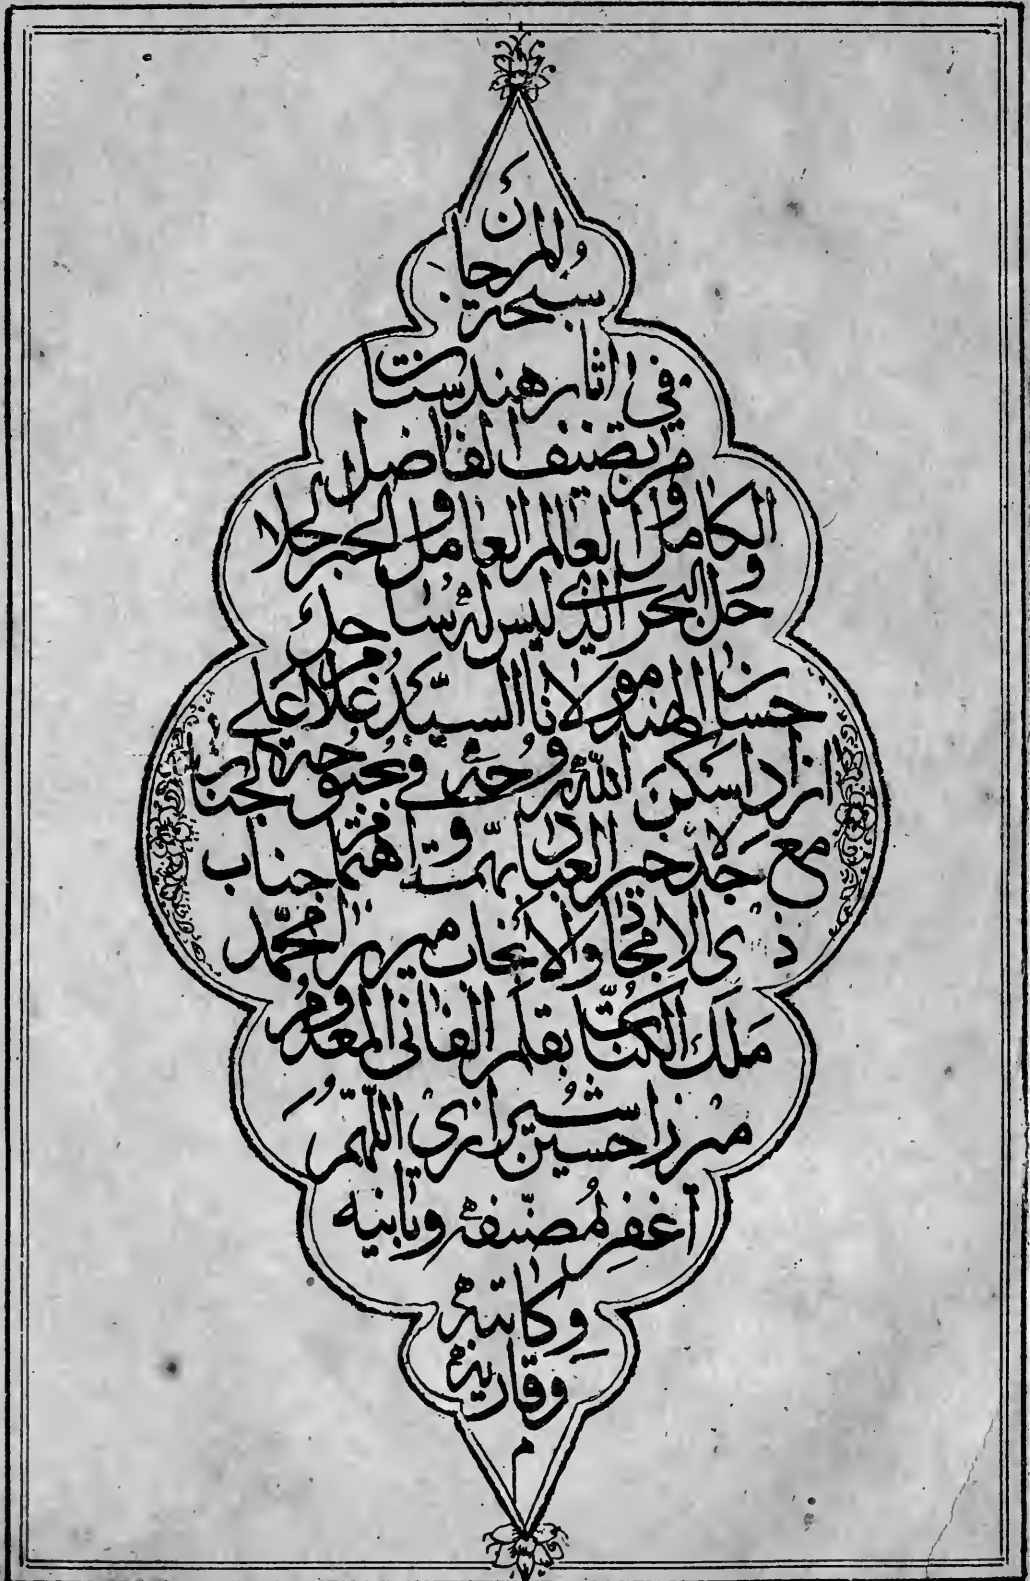 سبحة المرجان
في اثار هندستان
من تصنيف الفاضل
الكامل و العالم العامل و الحبر الحلا
حل و البحر الذي ليس له ساحل
حسان الهند مولانا السيد غلام على
ازاد اسكن الله روحه في بحبوحة الجنان
مع جده خير العباد
جناب
ذى الامجاد والانجاب ميرزا محمد
ملك الكتاب بقلم الفانى المعدوم
ميرزا حسين شيرازى اللهم
اغفر لمصنفه وبانيه
وكاتبه
وقاريه
م